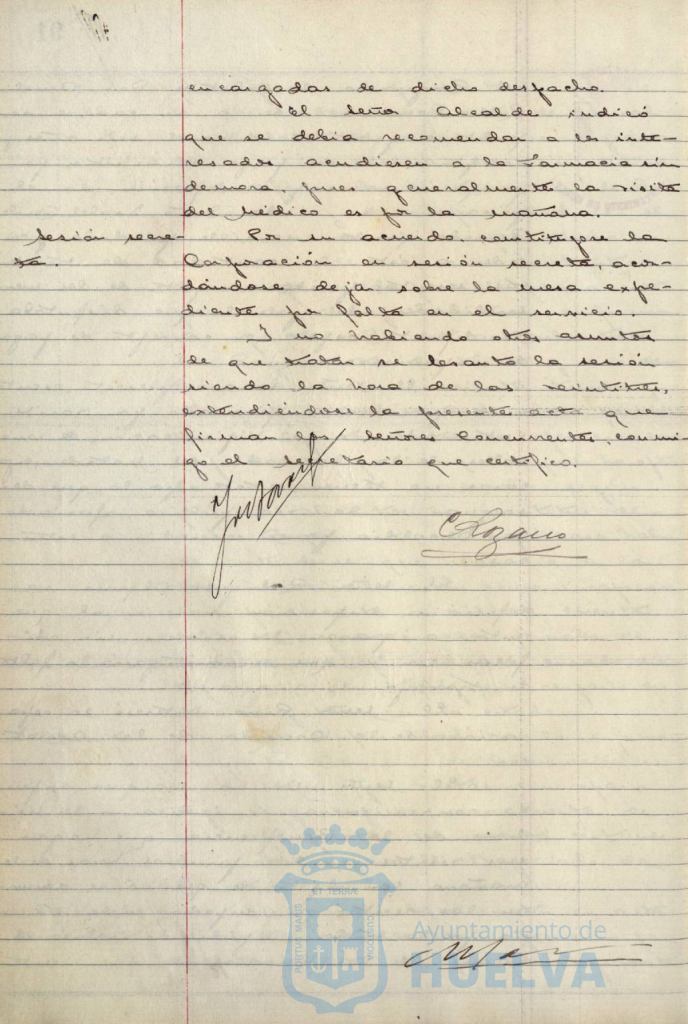 encargadas de dicho despacho.
El Señor Alcalde indicó
que se debia recomendar a los inte-
resados acudiesen a la Farmacia sin
demora, pues generalmente la visita
del Médico es por la mañana.
Sesión secre-
ta.
Por su acuerdo, constitúyose la
Corporación en sesión secreta, acor-
dándose dejar sobre la mesa expe-
diente por falta en el servicio.
Y no habiendo otros asuntos
de que tratar se levantó la sesión
siendo la hora de las veintitres,
extendiéndose la presente acta que
firman los Señores Concurrentes, conmi-
go el Secretario que certifico.
C Lozano
PORTUS MARIS
ET TERRÆ
CUSTODIA
Ayuntamiento de
HUELVA